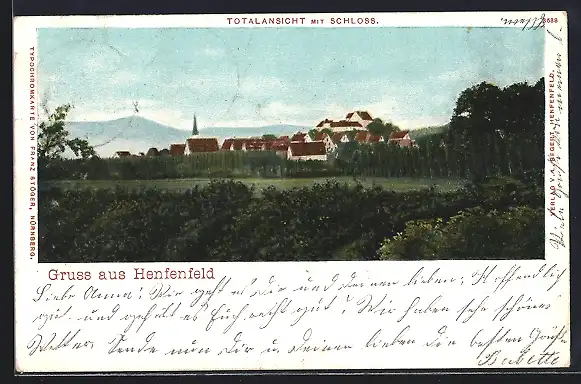 TOTALANSICHT MIT SCHLOSS.
TYPOCHROMKARTE VON FRANZ STÖGER, NÜRNBERG.
VERLAG V. A. SEGERT, HENFENFELD.
Gruss aus Henfenfeld
Liebe Anna! Wie geht es dir und deinen lieben, Hoffendlich
gut und gefällt es Euch recht gut? Wir haben sehr schönes
Wetter. Sende nun dir u. deinen lieben die besten Grüße
Babette